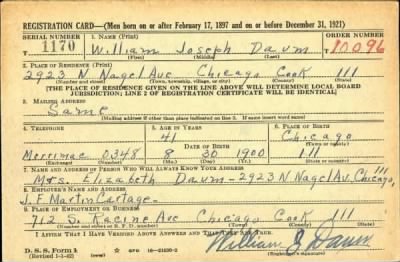 REGISTRATION CARD—(Men born on or after February 17, 1897 and on or before December 31, 1921)
SERIAL NUMBER 1. NAME (Print) ORDER NUMBER
1170 William Joseph Daum 10096
(First) (Middle) (Last)
2. PLACE OF RESIDENCE (Print)
2923 N Nagel Ave Chicago Cook Ill
(Number and street) (Town, township, village, or city) (County) (State)
[THE PLACE OF RESIDENCE GIVEN ON THE LINE ABOVE WILL DETERMINE LOCAL BOARD
JURISDICTION; LINE 2 OF REGISTRATION CERTIFICATE WILL BE IDENTICAL]
3. MAILING ADDRESS
Same
[Mailing address if other than place indicated on line 2. If same insert word same]
4. TELEPHONE 5. AGE IN YEARS 6. PLACE OF BIRTH
41 Chicago
DATE OF BIRTH (Town or county)
Merrimac 0348 8 30 1900 Ill
(Exchange) (Number) (Mo.) (Day) (Yr.) (State or country)
7. NAME AND ADDRESS OF PERSON WHO WILL ALWAYS KNOW YOUR ADDRESS
Mrs. Elizabeth Daum - 2923 N Nagel Av. Chicago, Ill
8. EMPLOYER'S NAME AND ADDRESS
J. F. Martin Cartage -
9. PLACE OF EMPLOYMENT OR BUSINESS
712 S. Racine Ave Chicago Cook Ill
(Number and street or R. F. D. number) (Town) (County) (State)
I AFFIRM THAT I HAVE VERIFIED ABOVE ANSWERS AND THAT THEY ARE TRUE.
D. S. S. Form 1
(Revised 1-1-42) (over) 16—21630-2 William J Daum
(Registrant's signature)